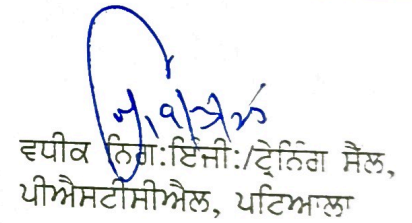 ਵਧੀਕ ਨਿਗ:ਇੰਜੀ:/ਟ੍ਰੇਨਿੰਗ ਸੈਲ,
ਪੀਐਸਟੀਸੀਐਲ, ਪਟਿਆਲਾ